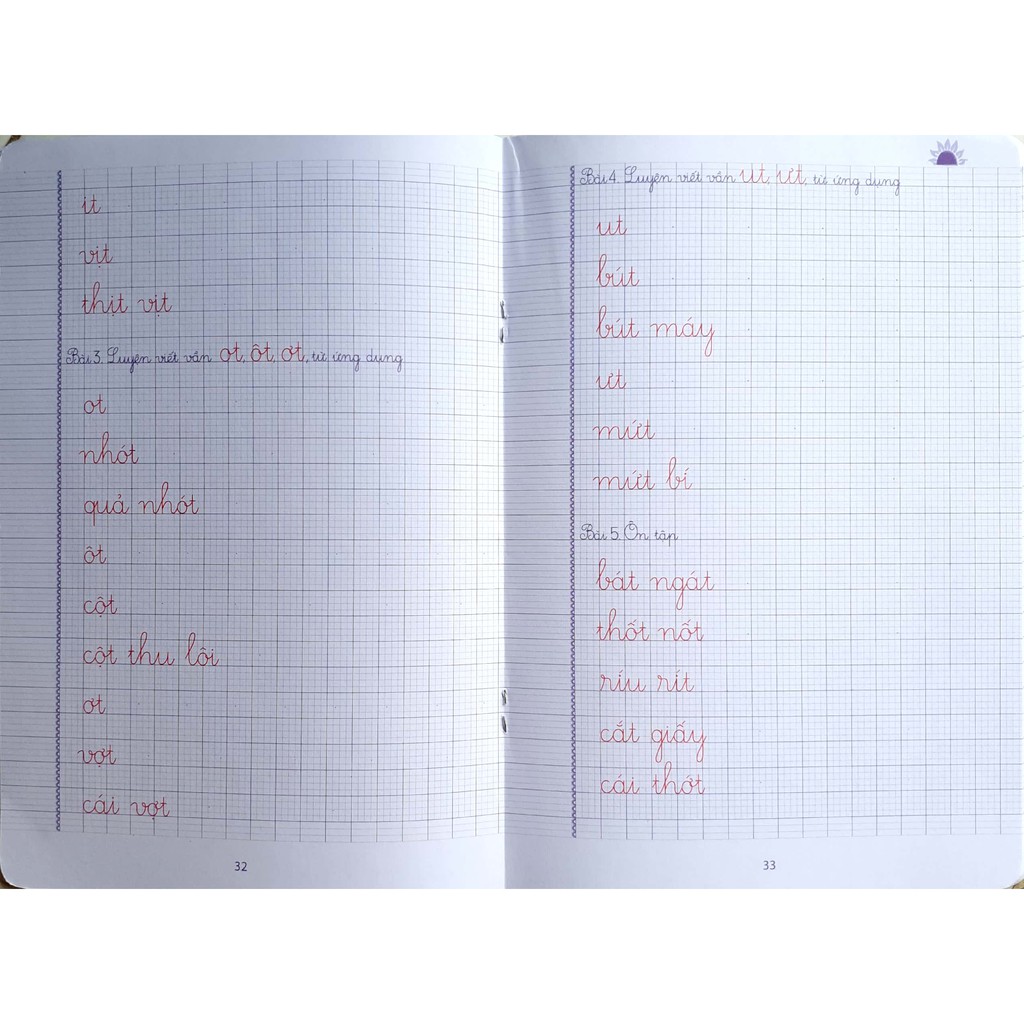 it
vịt
thịt vịt
Bài 3. Luyện viết vần ot, ôt, ơt, từ ứng dụng
ot
nhót
quả nhót
ôt
cột
cột thu lôi
ơt
vợt
cái vợt
32
Bài 4. Luyện viết vần ut, ưt, từ ứng dụng
ut
bút
bút máy
ưt
mứt
mứt bí
Bài 5. Ôn tập
bát ngát
thốt nốt
ríu rít
cắt giấy
cái thớt
33